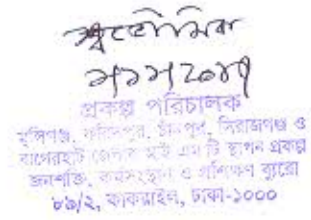 প্রকল্প পরিচালক
মুন্সিগঞ্জ, ফরিদপুর, চাঁদপুর, সিরাজগঞ্জ ও
বাগেরহাট জেলায় আই এম টি স্থাপন প্রকল্প
জনশক্তি, কর্মসংস্থান ও প্রশিক্ষণ ব্যুরো
৮৯/২, কাকরাইল, ঢাকা-১০০০